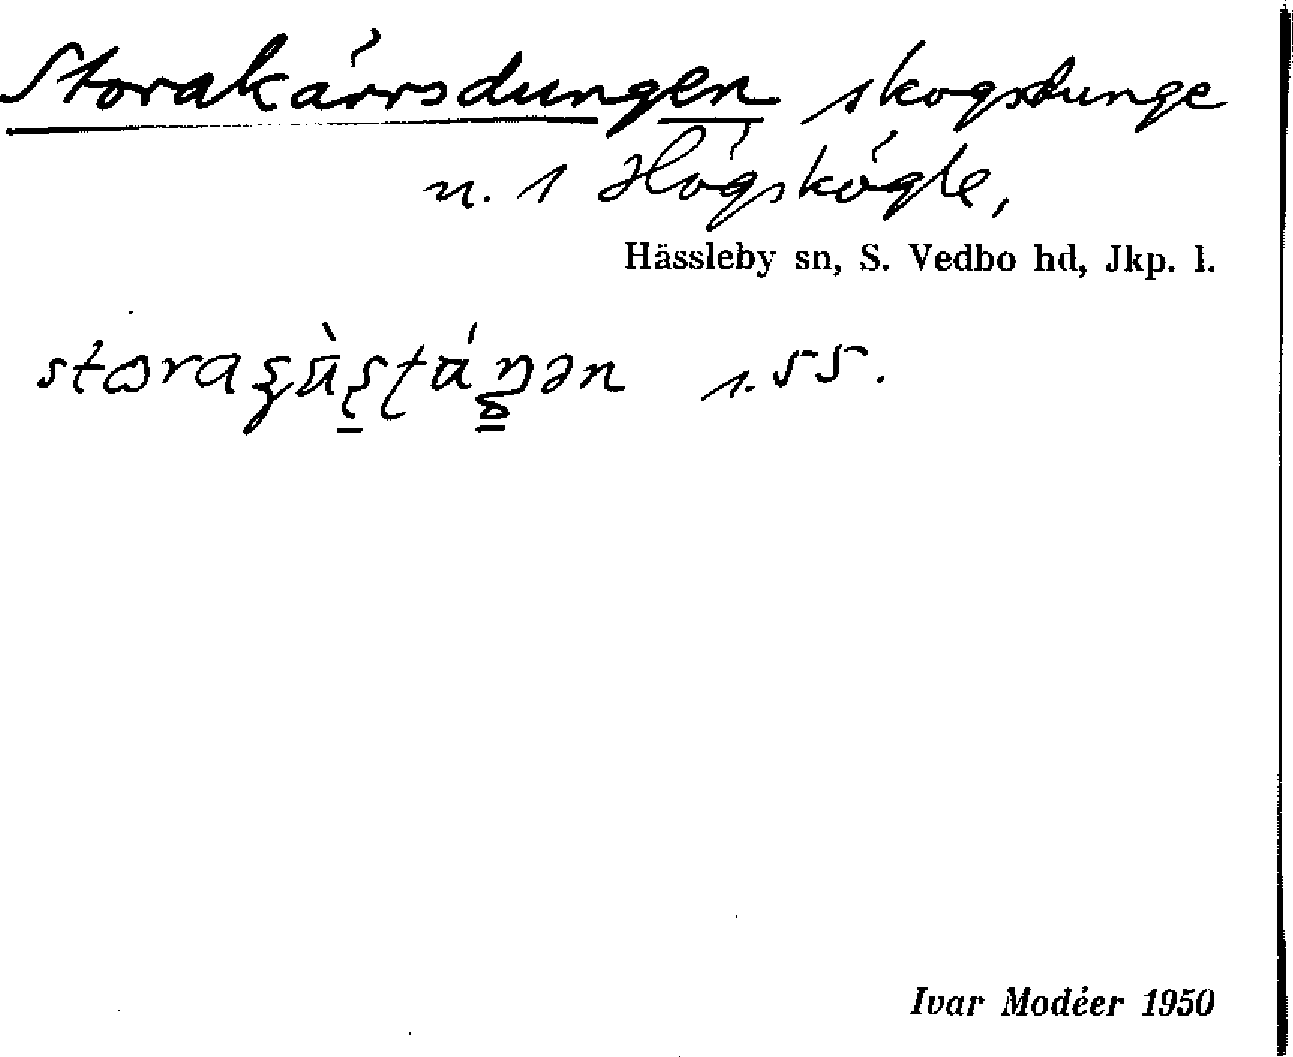 Storakärrsdungen skogsdunge
n. 1 Högskögle,
Hässleby sn, S. Vedbo hd, Jkp. l.
s. 55.
Ivar Modéer 1950